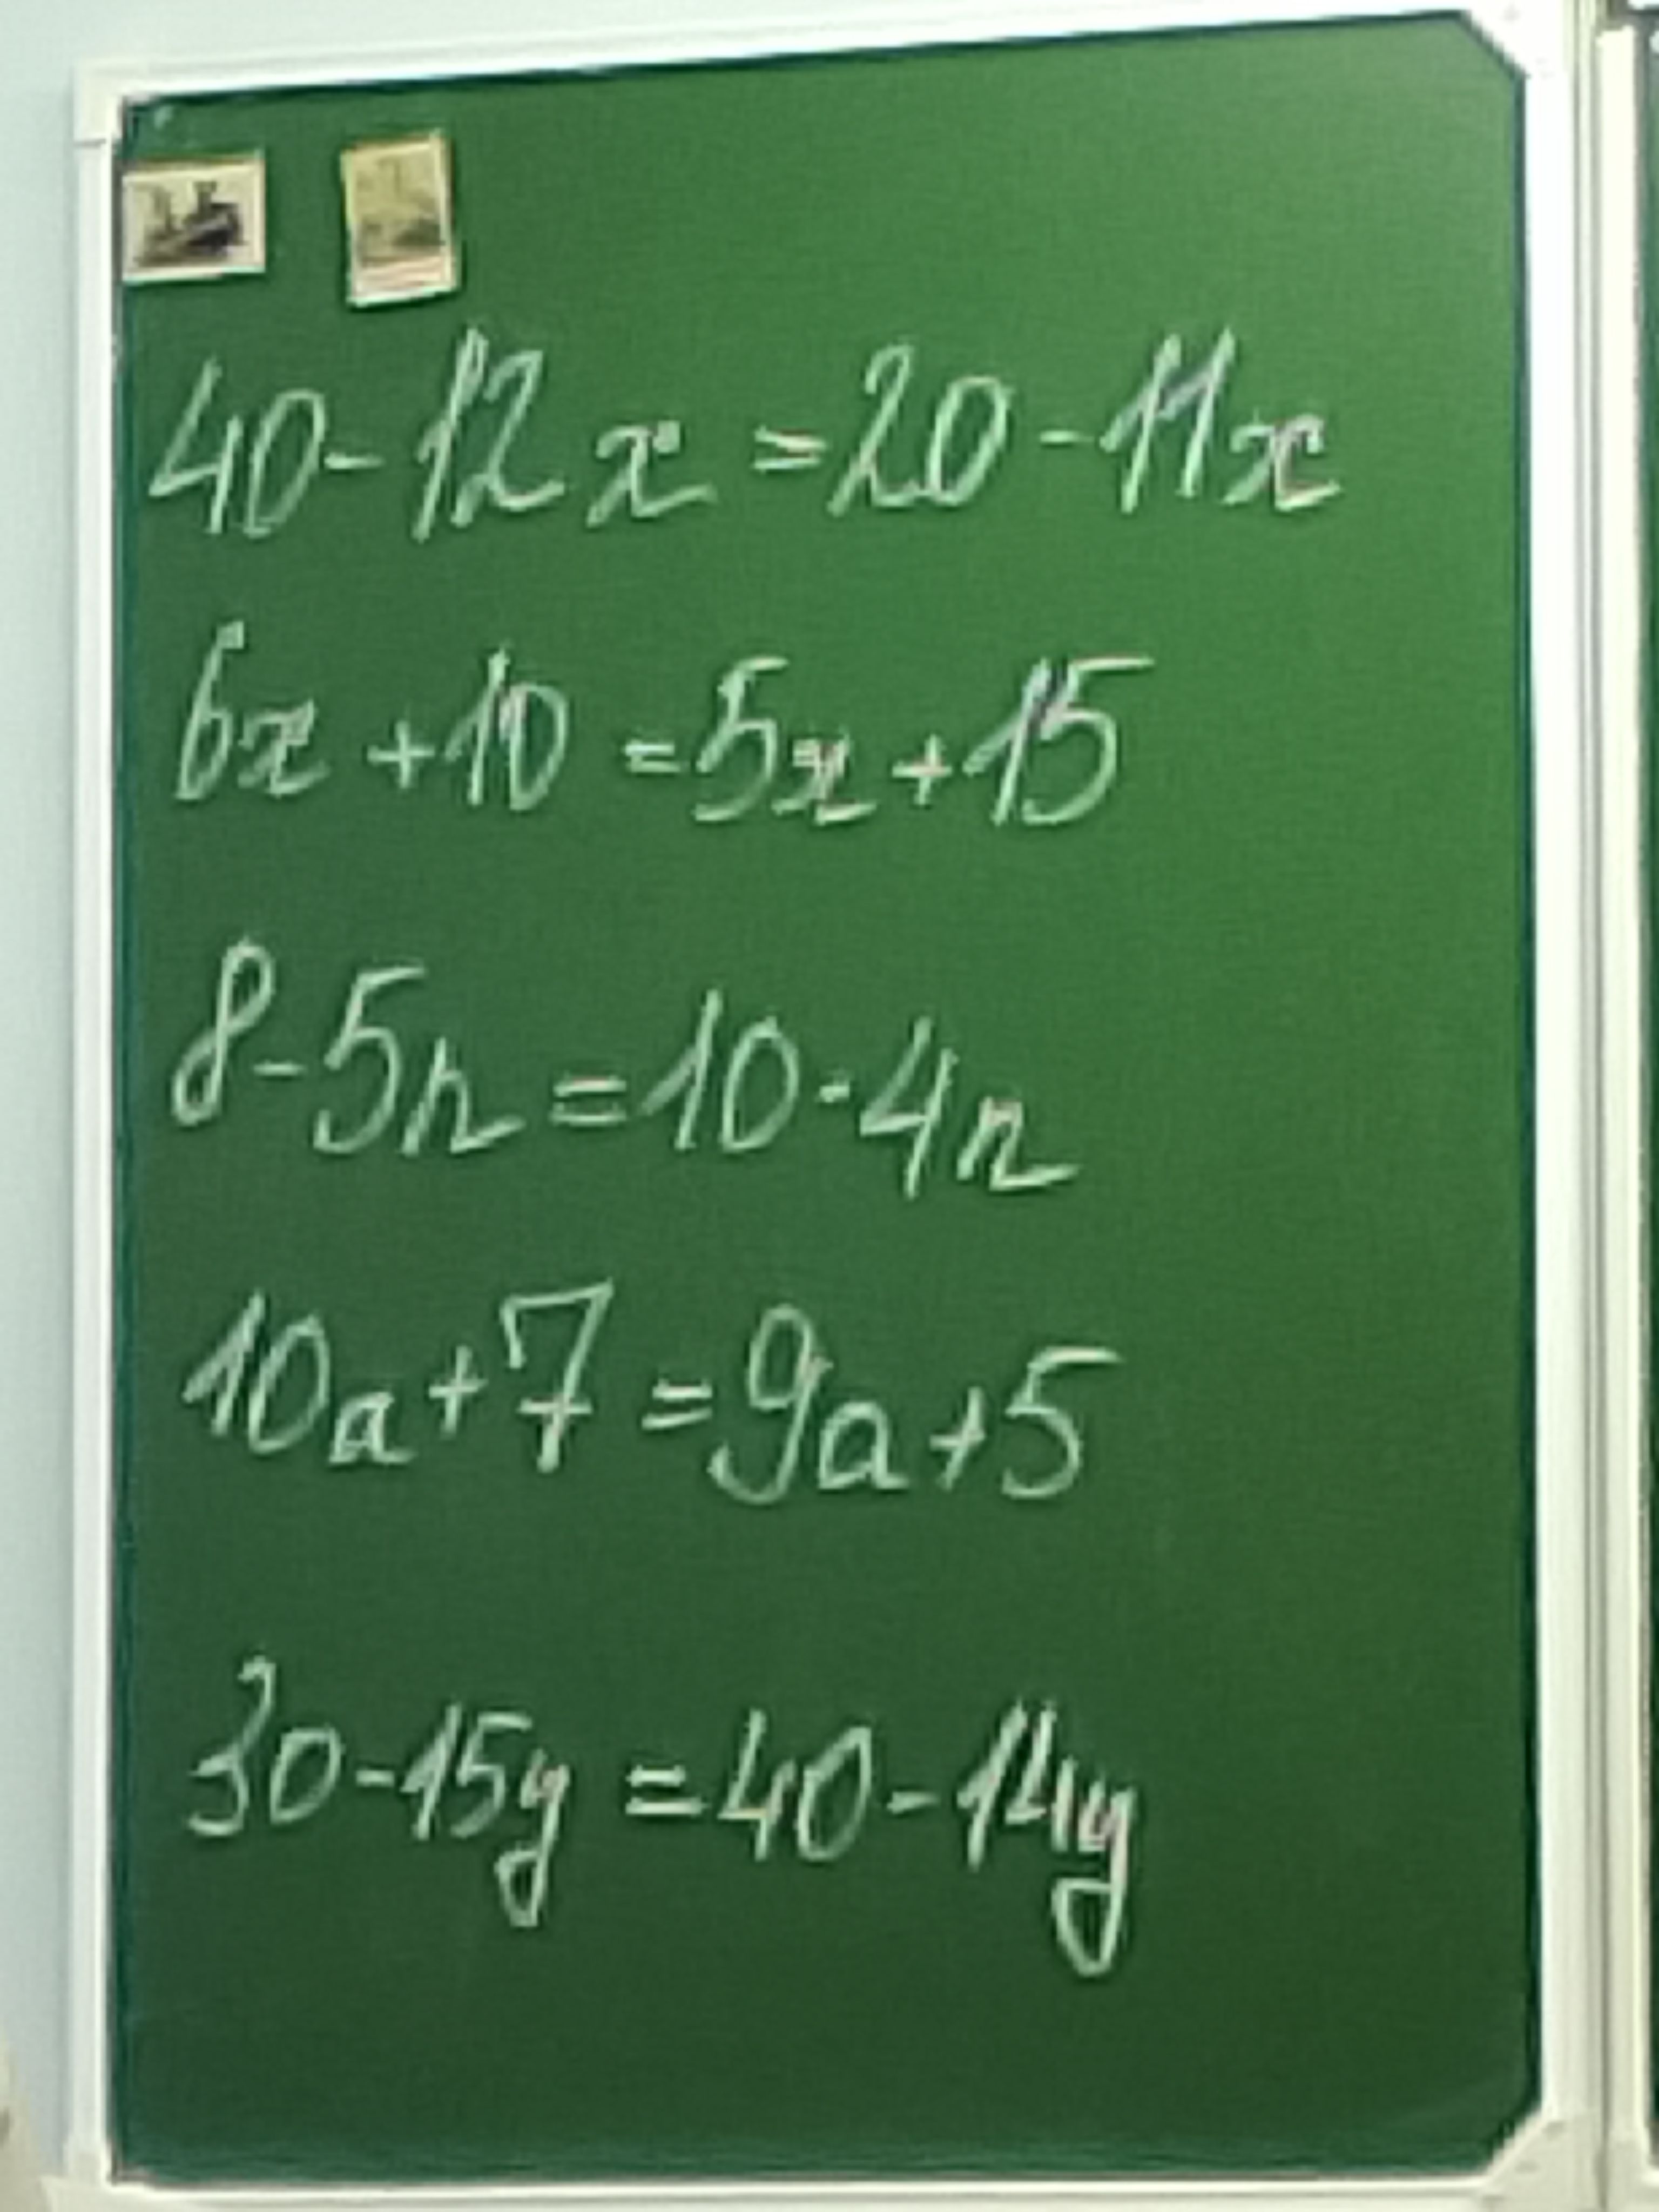 40-12x=20-11x
6x+10=5x+15
8-5n=10-4n
10a+7=9a+5
30-15y=40-14y